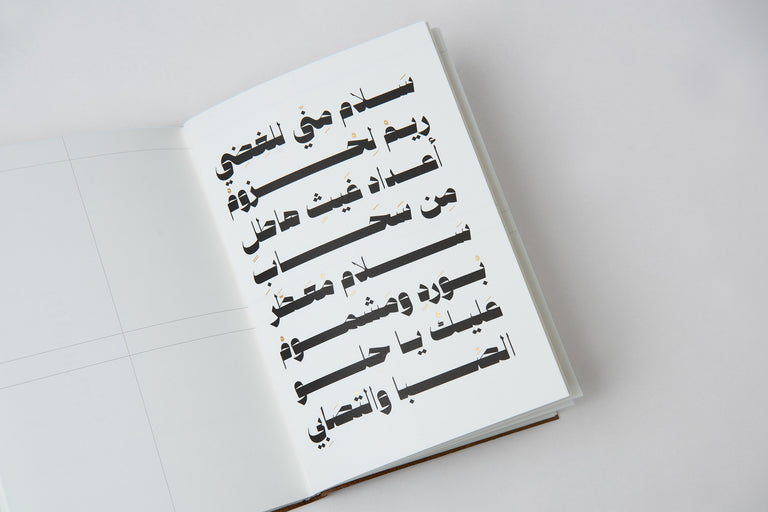 سَلام مِنّي للغضِي
ريمْ لِخْزومْ
أعداد غَيثِ هاطل
مِن سَحَابَ
سَلامِ مُعَطَّر
بْوَردِ ومشمومْ
عَليكْ يا حلو
الصِّبا والتصَابي